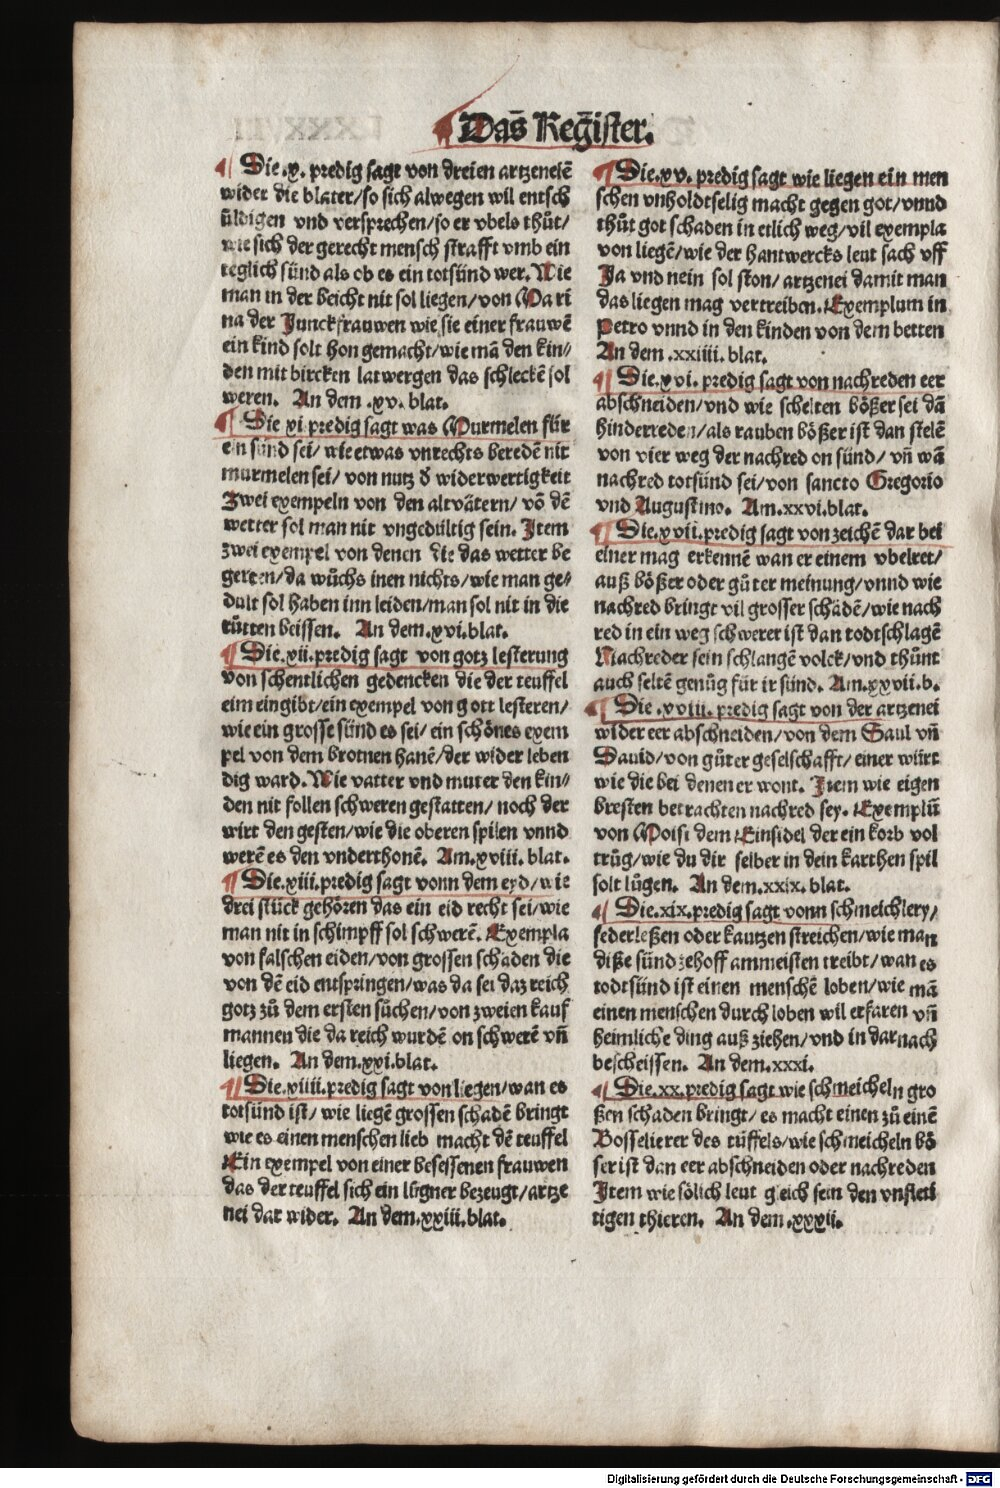 Das Register.
¶ Die .x. predig sagt von dreien artzeneiē
wider die blater/so sich alwegen wil entsch
üldigen vnd versprechen/so er vbels thůt/
wie sich der gerecht mensch strafft vmb ein
teglich sünd als ob es ein totsünd wer. Wie
man in der beicht nit sol liegen/von Mari
na der Junckfrauwen wie sie einer frauwē
ein kind solt hon gemacht/wie mā den kin⸗
den mit bircken latwergen das schleckē sol
weren. An dem .xv. blat.
¶ Die xi predig sagt was Murmelen für
ein sünd sei/ wie etwas vnrechts beredē nit
murmelen sei/ von nutz d̕ widerwertigkeit
Zwei exempeln von den altvätern/ vō dē
wetter sol man nit vngedültig sein. Item
zwei exempel von denen die das wetter be
gerten/da wůchs inen nichts/wie man ge⸗
dult sol haben inn leiden/man sol nit in die
růtten beissen. An dem .xvi.blat.
¶ Die .xii. predig sagt von gotz lesterung
von schentlichen gedencken die der teuffel
eim eingibt/ein exempel von gott lesteren/
wie ein grosse sünd es sei/ ein schönes exem
pel von dem brotnen hanē/der wider leben
dig ward. Wie vatter vnd muter den kin⸗
den nit sollen schweren gestatten/ noch der
wirt den gesten/wie die oberen spilen vnnd
werē es den vnderthonē. Am .xviii. blat.
¶ Die .xiii. predig sagt vonn dem eyd/wie
drei stück gehören das ein eid recht sei/wie
man nit in schimpff sol schwerē. Exempla
von falschen eiden/von grossen schaden die
von dē eid entspringen/was da sei daz reich
gotz zů dem ersten sůchen/von zweien kauf
mannen die da reich wurdē on schwerē vñ
liegen. An dem .xxi.blat.
¶ Die .xiiii. predig sagt von liegen/wan es
totsünd ist/ wie liegē grossen schadē bringt
wie es einen menschen lieb macht dē teuffel
Ein exempel von einer besessenen frauwen
das der teuffel sich ein lügner bezeugt/artze
nei dar wider. An dem .xxiii.blat.
¶ Die .xv. predig sagt wie liegen ein men
schen vnholdtselig macht gegen got/vnnd
thůt got schaden in etlich weg/vil exempla
von liegē/wie der hantwercks leut sach vff
Ja vnd nein sol ston/ artzenei damit man
das liegen mag vertreiben. Exemplum in
Petro vnnd in den kinden von dem betten
An dem .xxiiii. blat.
¶ Die .xvi. predig sagt von nachreden eer
abschneiden/vnd wie schelten bößer sei dā
hinderreden/als rauben bößer ist dan stelē
von vier weg der nachred on sünd/ vñ wā
nachred totsünd sei/von sancto Gregorio
vnd Augustino. Am .xxvi.blat.
¶ Die .xvii. predig sagt von zeichē dar bei
einer mag erkennē wan er einem vbelret/
auß bößer oder gůter meinung/vnnd wie
nachred bringt vil grosser schädē/wie nach
red in ein weg schwerer ist dan todtschlagē
Nachreder sein schlangē volck/vnd thůnt
auch seltē genůg für ir sünd. Am .xxvii.b.
¶ Die .xviii. predig sagt von der artzenei
wider eer abschneiden/von dem Saul vñ
Dauid/von gůter geselschafft/ einer würt
wie die bei denen er wont. Item wie eigen
bresten betrachten nachred sey. Exemplū
von Moisi dem Einsidel der ein korb vol
trůg/wie du dir selber in dein karthen spil
solt lůgen. An dem .xxix. blat.
¶ Die .xix. predig sagt vonn schmeichlery/
federleßen oder kautzen streichen/wie man
diße sünd zehoff ammeisten treibt/wan es
todtsünd ist einen menschē loben/wie mā
einen menschen durch loben wil erfaren vñ
heimliche ding auß ziehen/vnd in darnach
bescheissen. An dem .xxxi.
¶ Die .xx. predig sagt wie schmeicheln gro
ßen schaden bringt/ es macht einen zů einē
Bosselierer des tüffels/wie schmeicheln bö
ser ist dan eer abschneiden oder nachreden
Item wie sölich leut gleich sein den vnfleti
tigen thieren. An dem .xxxii.
Digitalisierung gefördert durch die Deutsche Forschungsgemeinschaft - DFG